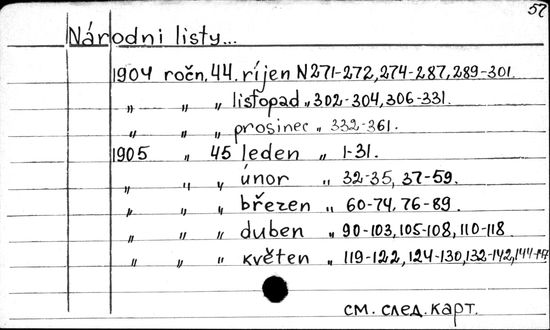 57
Národni listy...
1904 ročn. 44. ríjen N271-272, 274-287, 289-301.
„ „ „ listopad „ 302-304, 306-331.
„ „ „ prosinec „ 332-361.
1905 „ 45 leden „ 1-31.
„ „ „ únor „ 32-35, 37-59.
„ „ „ březen „ 60-74, 76-89.
„ „ „ duben „ 90-103, 105-108, 110-118
„ „ „ květen „ 119-122, 124-130, 132-142,
см. след. карт.